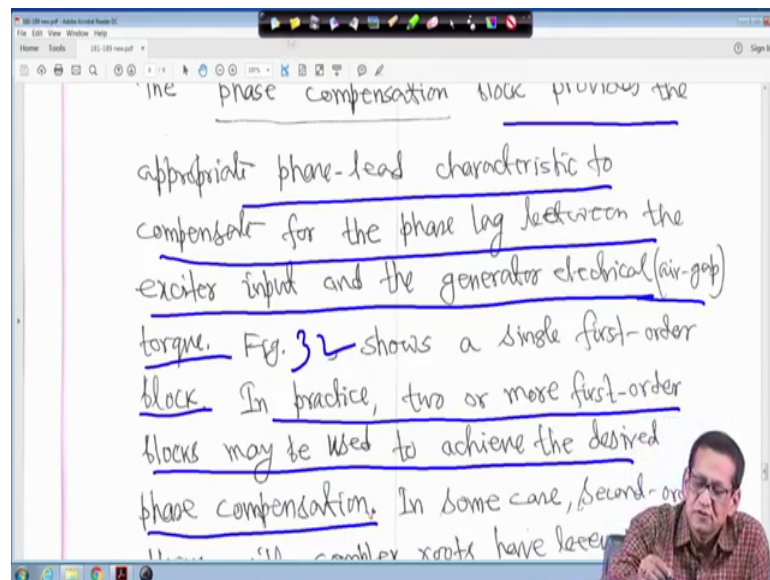 181-189 new.pdf - Adobe Acrobat Reader DC
File Edit View Window Help
Home Tools 181-189 new.pdf ×
Sign In
The phase compensation block provides the
appropriate phase-lead characteristic to
compensate for the phase lag between the
exciter input and the generator electrical (air-gap)
torque. Fig. 32 shows a single first-order
block. In practice, two or more first-order
blocks may be used to achieve the desired
phase compensation. In some case, second-or
complex roots have been